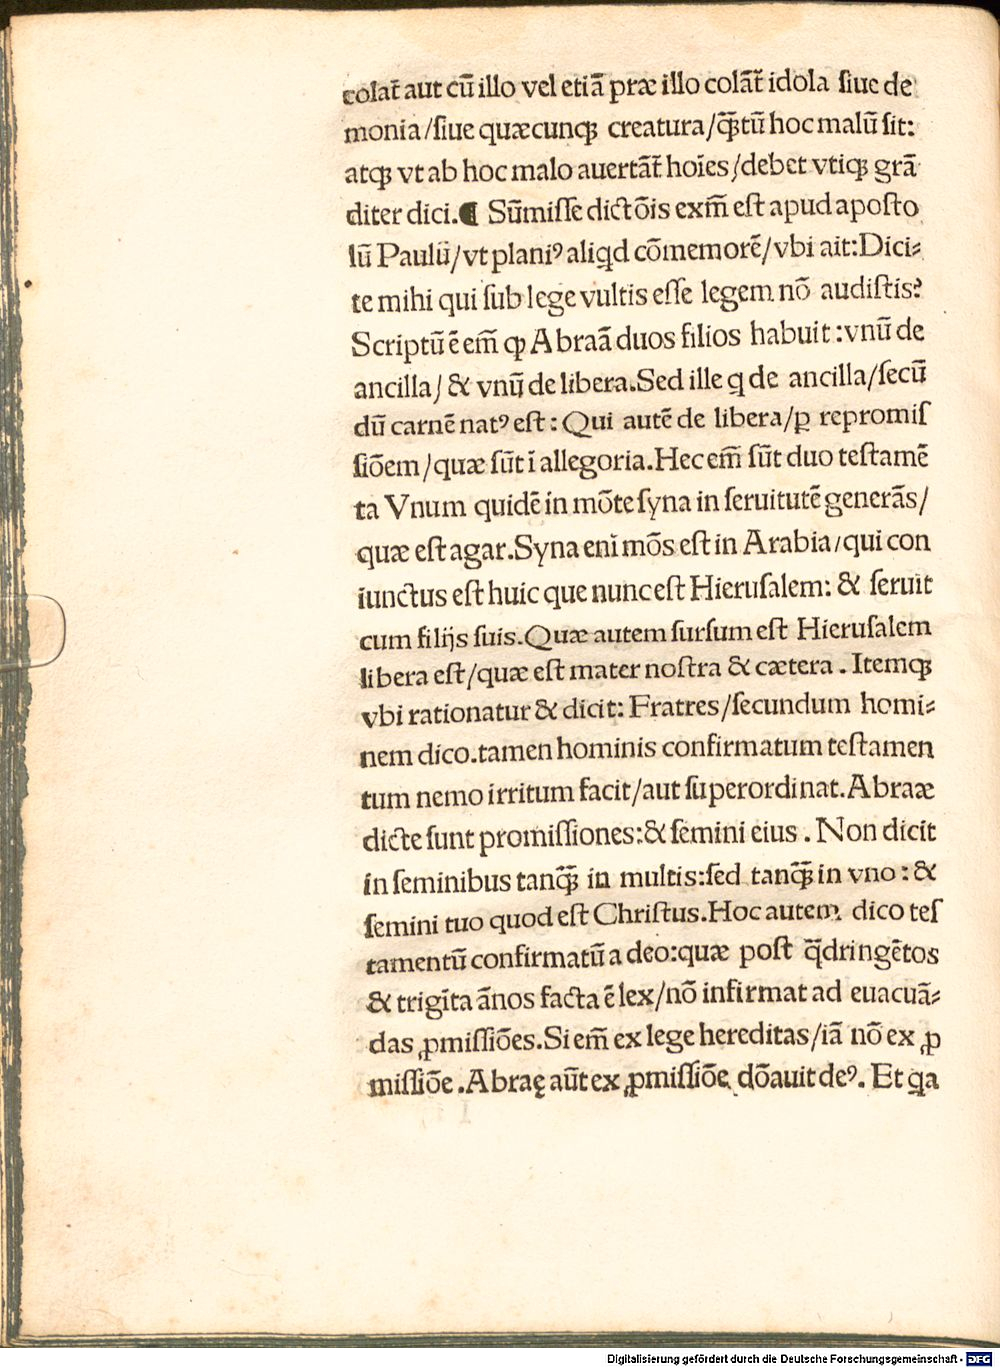 colat᷑ aut cū illo vel etiā præ illo colāt᷑ idola ſiue de
monia/ſiue quæcunqꝫ creatura/qꝫ̄tū hoc malū ſit:
atqꝫ vt ab hoc malo auertāt᷑ hoīes/debet vtiqꝫ grā
diter dici.¶ Sūmiſſe dictōis exm̄ eſt apud apoſto
lū Paulū/vt planiꝰ aliqd cōmemorē/vbi ait:Dici⸗
te mihi qui ſub lege vultis eſſe legem nō audiſtis?
Scriptū ē em̄ ꝙ Abraā duos filios habuit:vnū de
ancilla/& vnū de libera.Sed ille ꝗ de ancilla/ſecū
dū carnē natꝰ eſt:Qui autē de libera/ꝑ repromiſ
ſiōem/quæ ſūt ī allegoria.Hec em̄ ſūt duo teſtamē
ta Vnum quidē in mōte ſyna in ſeruitutē generās/
quæ eſt agar.Syna enī mōs eſt in Arabia/qui con
iunctus eſt huic que nunc eſt Hieruſalem: & ſeruit
cum filijs ſuis.Quæ autem ſurſum eſt Hieruſalem
libera eſt/quæ eſt mater noſtra & cætera . Itemqꝫ
vbi rationatur & dicit: Fratres/ſecundum homi⸗
nem dico.tamen hominis confirmatum teſtamen
tum nemo irritum facit/aut ſuperordinat.Abraæ
dicte ſunt promiſſiones:& ſemini eius . Non dicit
in ſeminibus tanqꝫ̄ in multis:ſed tanqꝫ̄ in vno:&
ſemini tuo quod eſt Chriſtus.Hoc autem dico teſ
tamentū confirmatū a deo:quæ poſt q̄dringētos
& trigīta ānos facta ē lex/nō infirmat ad euacuā⸗
das ꝓmiſſiōes.Si em̄ ex lege hereditas/iā nō ex ꝓ
miſſiōe .Abraę aūt ex ꝓmiſſiōe dōauit deꝰ. Et ꝗa
Digitalisierung gefördert durch die Deutsche Forschungsgemeinschaft - DFG